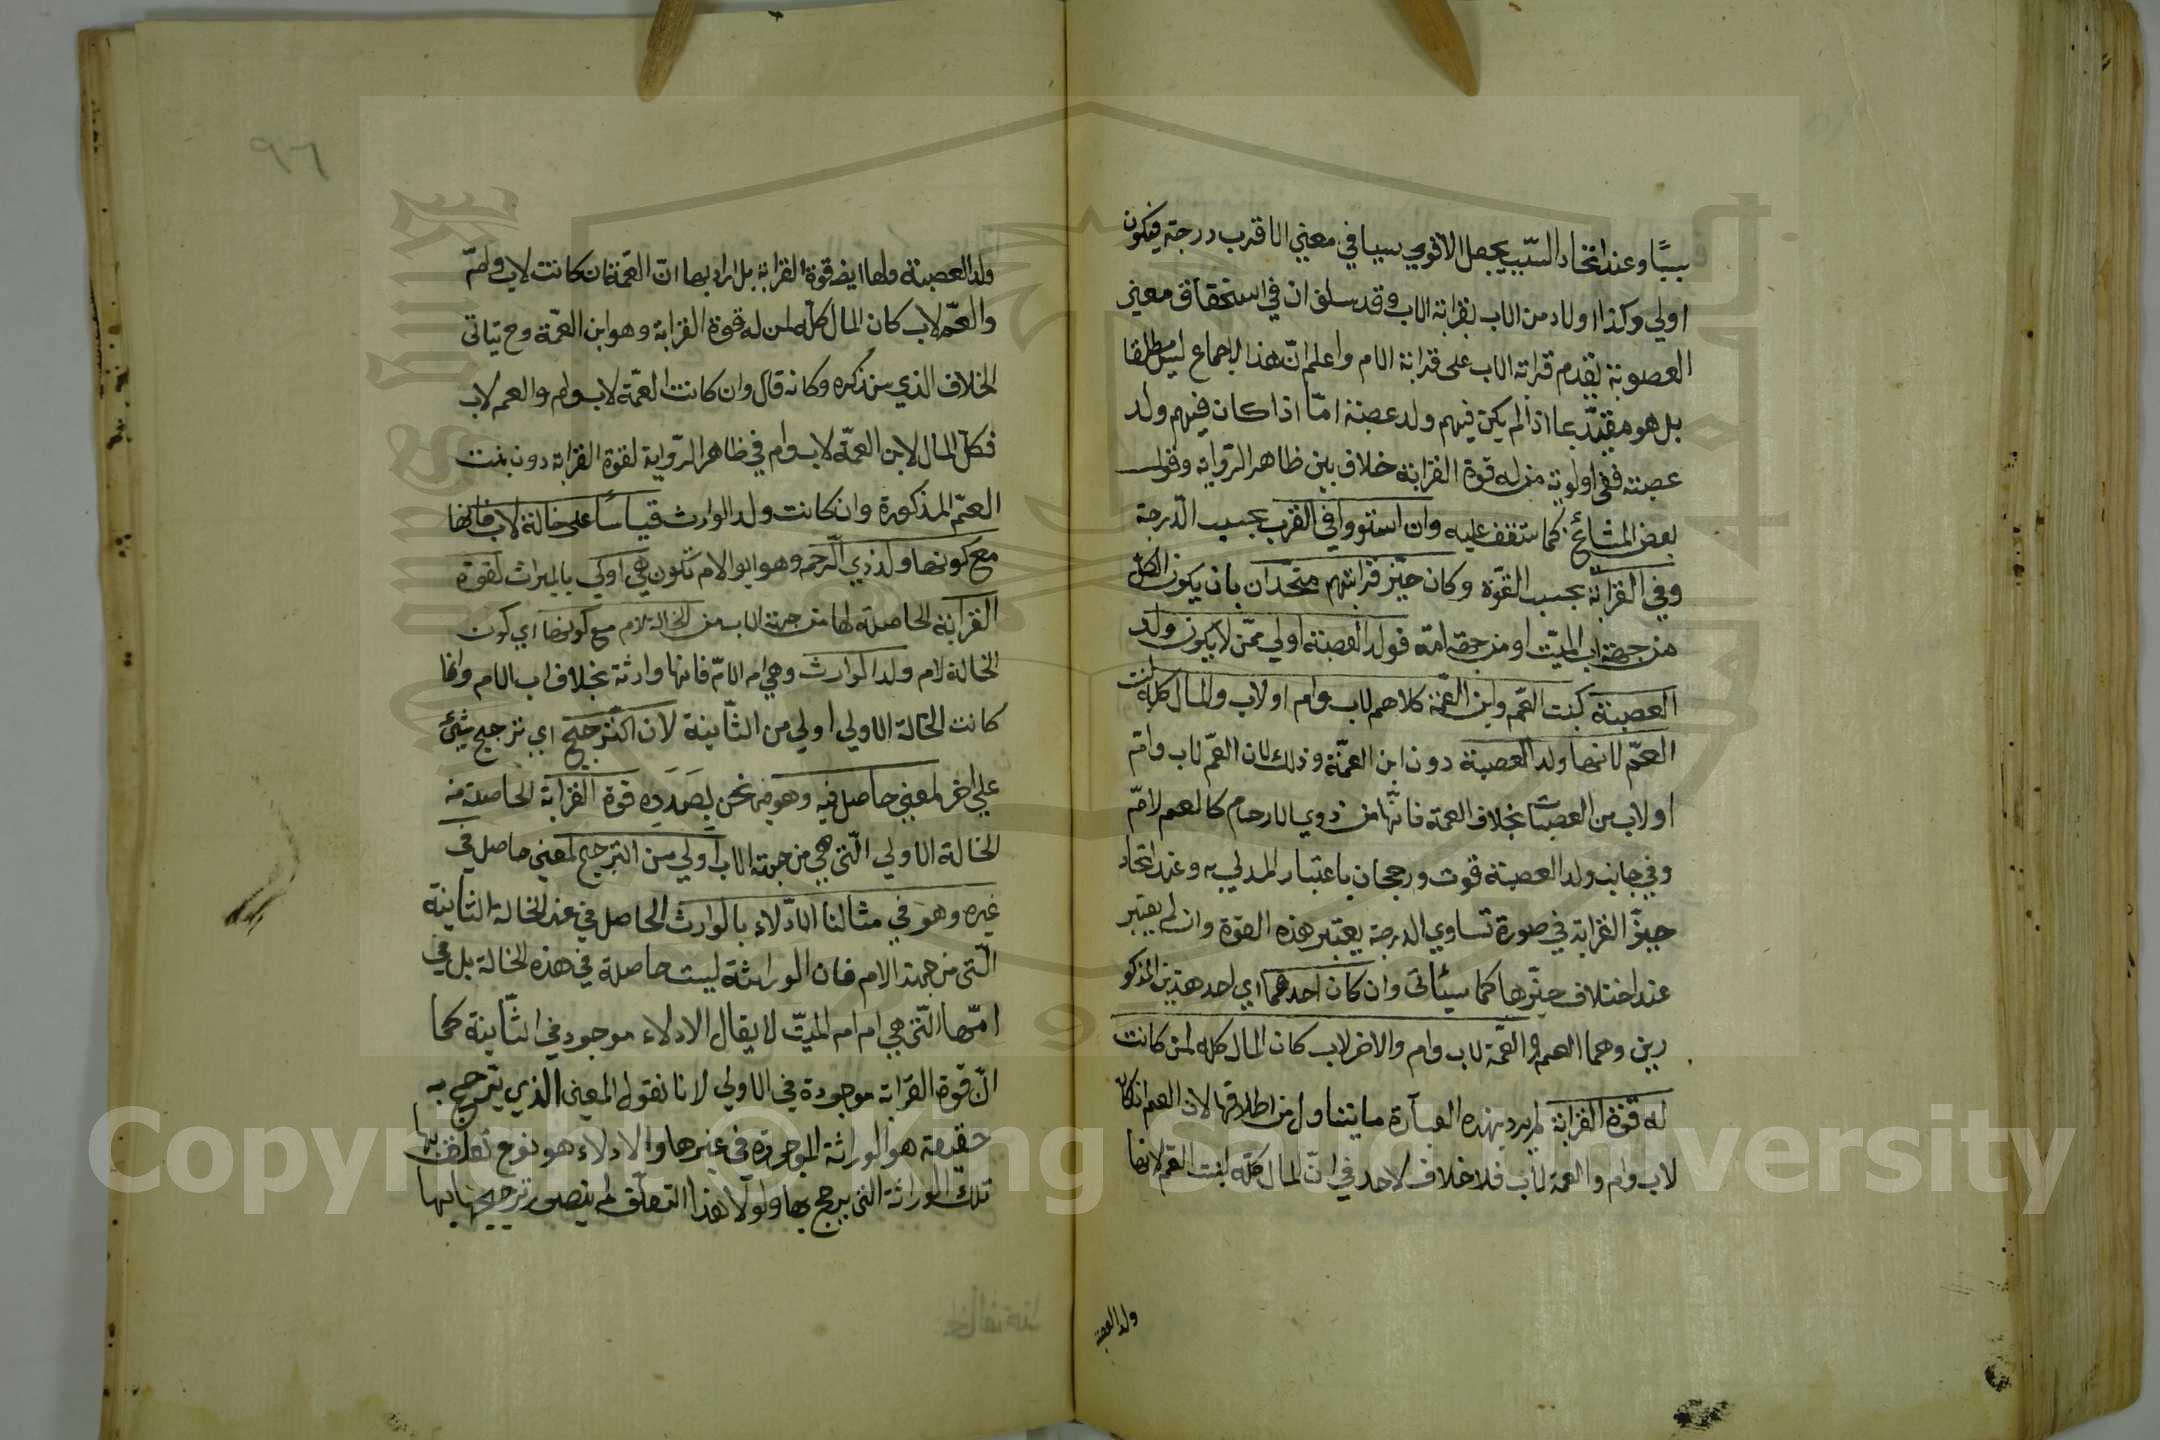 سببًا وعند اتحاد السبب يجعل الاقوي سببا في معني الاقرب درجة فيكون
اولي وكذا اولاد من الاب بقرابة الاب وقد سلف ان في استحقاق معني
العصوبة يقدم قرابة الاب على قرابة الام واعلم انّ هذا الاجماع ليس مطلقا
بل هو مقيّد بما اذا لم يكن فيهم ولد عصبة امّا اذا كان فيهم ولد
عصبة ففي اولوية من له قوة القرابة خلاف بين ظاهر الرّواية وقول
بعض المشائخ كما ستقف عليه وان استووا في القرب بحسب الدّرجة
وفي القرابة بحسب القوّة وكان حيّز قرابتهم متحدا بان يكون الكل
من جهة اب الميّت او من جهة امّه فولد العصبة اولي ممّن لا يكون ولد
العصبة كبنت العم وابن العمّة كلاهم لاب وام او لاب والمال كله لبنت
العمّ لانها ولد العصبة دون ابن العمّة وذلك لان العمّ لاب وامّ
او لاب من العصبات بخلاف العمة فانّها من ذوي الارحام كالعم لامّ
وفي جانب ولد العصبة قوة ورجحان باعتبار المدلي به وعند اتحاد
حيّز القرابة في صورة تساوي الدرجة يعتبر هذه القوّة وان لم يعتبر
عند اختلاف حيّزها كما سيئاتى وان كان احدهما اي احد هذين المذكو
رين وهما العم والعمّة لاب وام والاخر لاب كان المال كله لمن كانت
له قوّة القرابة لم يرد بهذه العبارة ما يتناول من اطلاقها لان العم ان كان
لاب وام والعمة لاب فلا خلاف لاحد في انّ المال كلّه لبنت العم لانها
ولد العصبة
٩٦
ولد العصبة ولها ايضا قوة القرابة بل اراد بها انّ العمّة ان كانت لاب وامّ
والعمّ لاب كان المال كلّه لمن له قوة القرابة وهو ابن العمّة وح يتاتى
الخلاف الذي سنذكره وكانه قال وان كانت العمّة لاب وام والعم لاب
فكلّ المال لابن العمّة لاب وام في ظاهر الرّواية لقوة القرابة دون بنت
العمّ المذكورة وان كانت ولد الوارث قياسًا على خالة لاب فانّها
مع كونها ولد ذي الرّحم وهو ابو الام تكون هي اولى بالميراث لقوة
القرابة الحاصلة لها من جهة الاب من الخالة لام مع كونها اي كون
الخالة لام ولد الوارث وهي ام الامّ فانها وارثة بخلاف اب الام وانما
كانت الخالة الاولي اولي من الثّانية لان التّرجيح اي ترجيح شيئ
علي اخر لمعني حاصل فيه وهو فيما نحن بصدده قوة القرابة الحاصلة في
الخالة الاولي الّتي هي من جهة الاب اولي من الترجيح لمعني حاصل في
غيره وهو في مثالنا الادّلاء بالوارث الحاصل في عند الخالة الثانية
الّتي من جهة الام فان الوراثة ليست حاصلة في هذه الخالة بل هي في
امّها الّتي هي ام ام الميّت لا يقال الادلاء موجود في الثّانية كما
انّ قوة القرابة موجودة في الاولي لانا نقول المعني الذي يترجح به
حقيقة هو الوراثة الموجودة في غيرها والادلاء هو نوع تعلّق بها
تلك الوراثة التي يرجح بها ولولا هذا التعلّق لم يتصور ترجيحها بها
Copyright © King Saud University